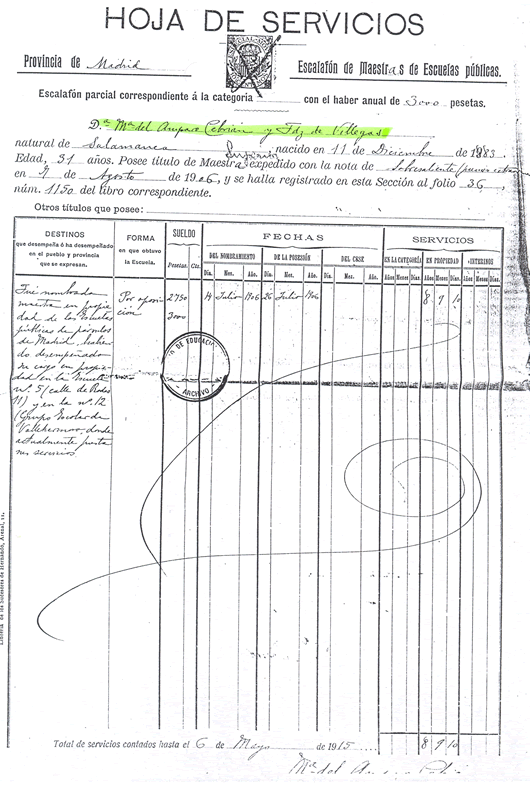 HOJA DE SERVICIOS
Provincia de Madrid
Escalafón de Maestras de Escuelas públicas.
Escalafón parcial correspondiente á la categoría con el haber anual de 3000 pesetas.
D.ª Mª del Amparo Cebrián y Fdz de Villegas
natural de Salamanca nacido en 11 de Diciembre de 1883.
Edad, 31 años. Posee título de Maestra Superior expedido con la nota de Sobresaliente
en 9 de Agosto de 1906, y se halla registrado en esta Sección al folio 36,
núm. 1150 del libro correspondiente.
Otros títulos que posee:
DESTINOS
que desempeña ó ha desempeñado
en el pueblo y provincia
que se expresan.
FORMA
en que obtuvo
la Escuela.
SUELDO
Pesetas. Cts.
FECHAS
DEL NOMBRAMIENTO DE LA POSESIÓN DEL CESE
Día. Mes. Año. Día. Mes. Año. Día. Mes. Año.
SERVICIOS
EN LA CATEGORÍA EN PROPIEDAD INTERINOS
Años Meses Días Años Meses Días Años Meses Días
Fué nombrada Por oposi- 2750 14 Julio 1906 26 Julio 1906 8 9 10
maestra en propie- ción 3000
dad de las Escuelas
públicas de párvulos
de Madrid, habien-
do desempeñado
su cargo en propie-
dad en la Escuela
nº 5 (calle de Rodas
11) y en la nº 12
(Grupo Escolar de
Vallehermoso) donde
actualmente presta
sus servicios.
DE EDUCACI
ARCHIVO
Librería de los Sucesores de Hernando, Arenal, 11.
Total de servicios contados hasta el 6 de Mayo de 1915 8 9 10
Mª del Amparo Cebrián